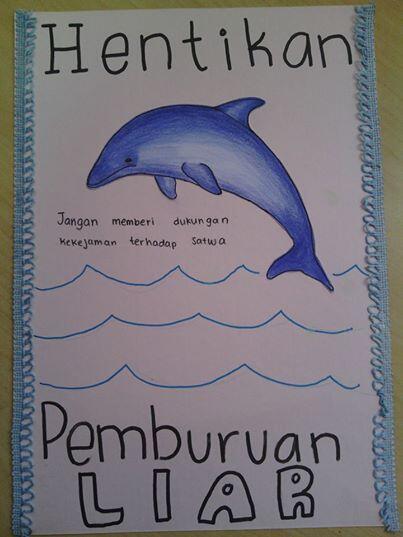 Hentikan
Jangan memberi dukungan
kekejaman terhadap satwa
Pemburuan
LIAR